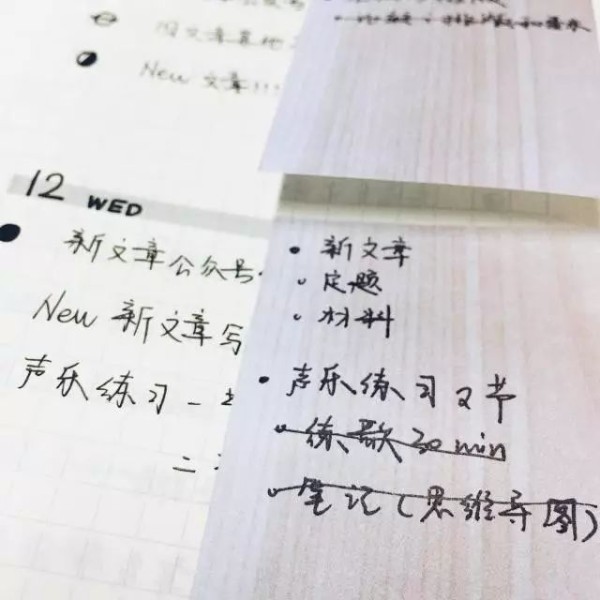 New 文章!!!
12 WED
新文章公众号
New 新文章写
声乐练习一
二
新文章
定题
材料
声乐练习2节
练歌30min
笔记(思维导图)